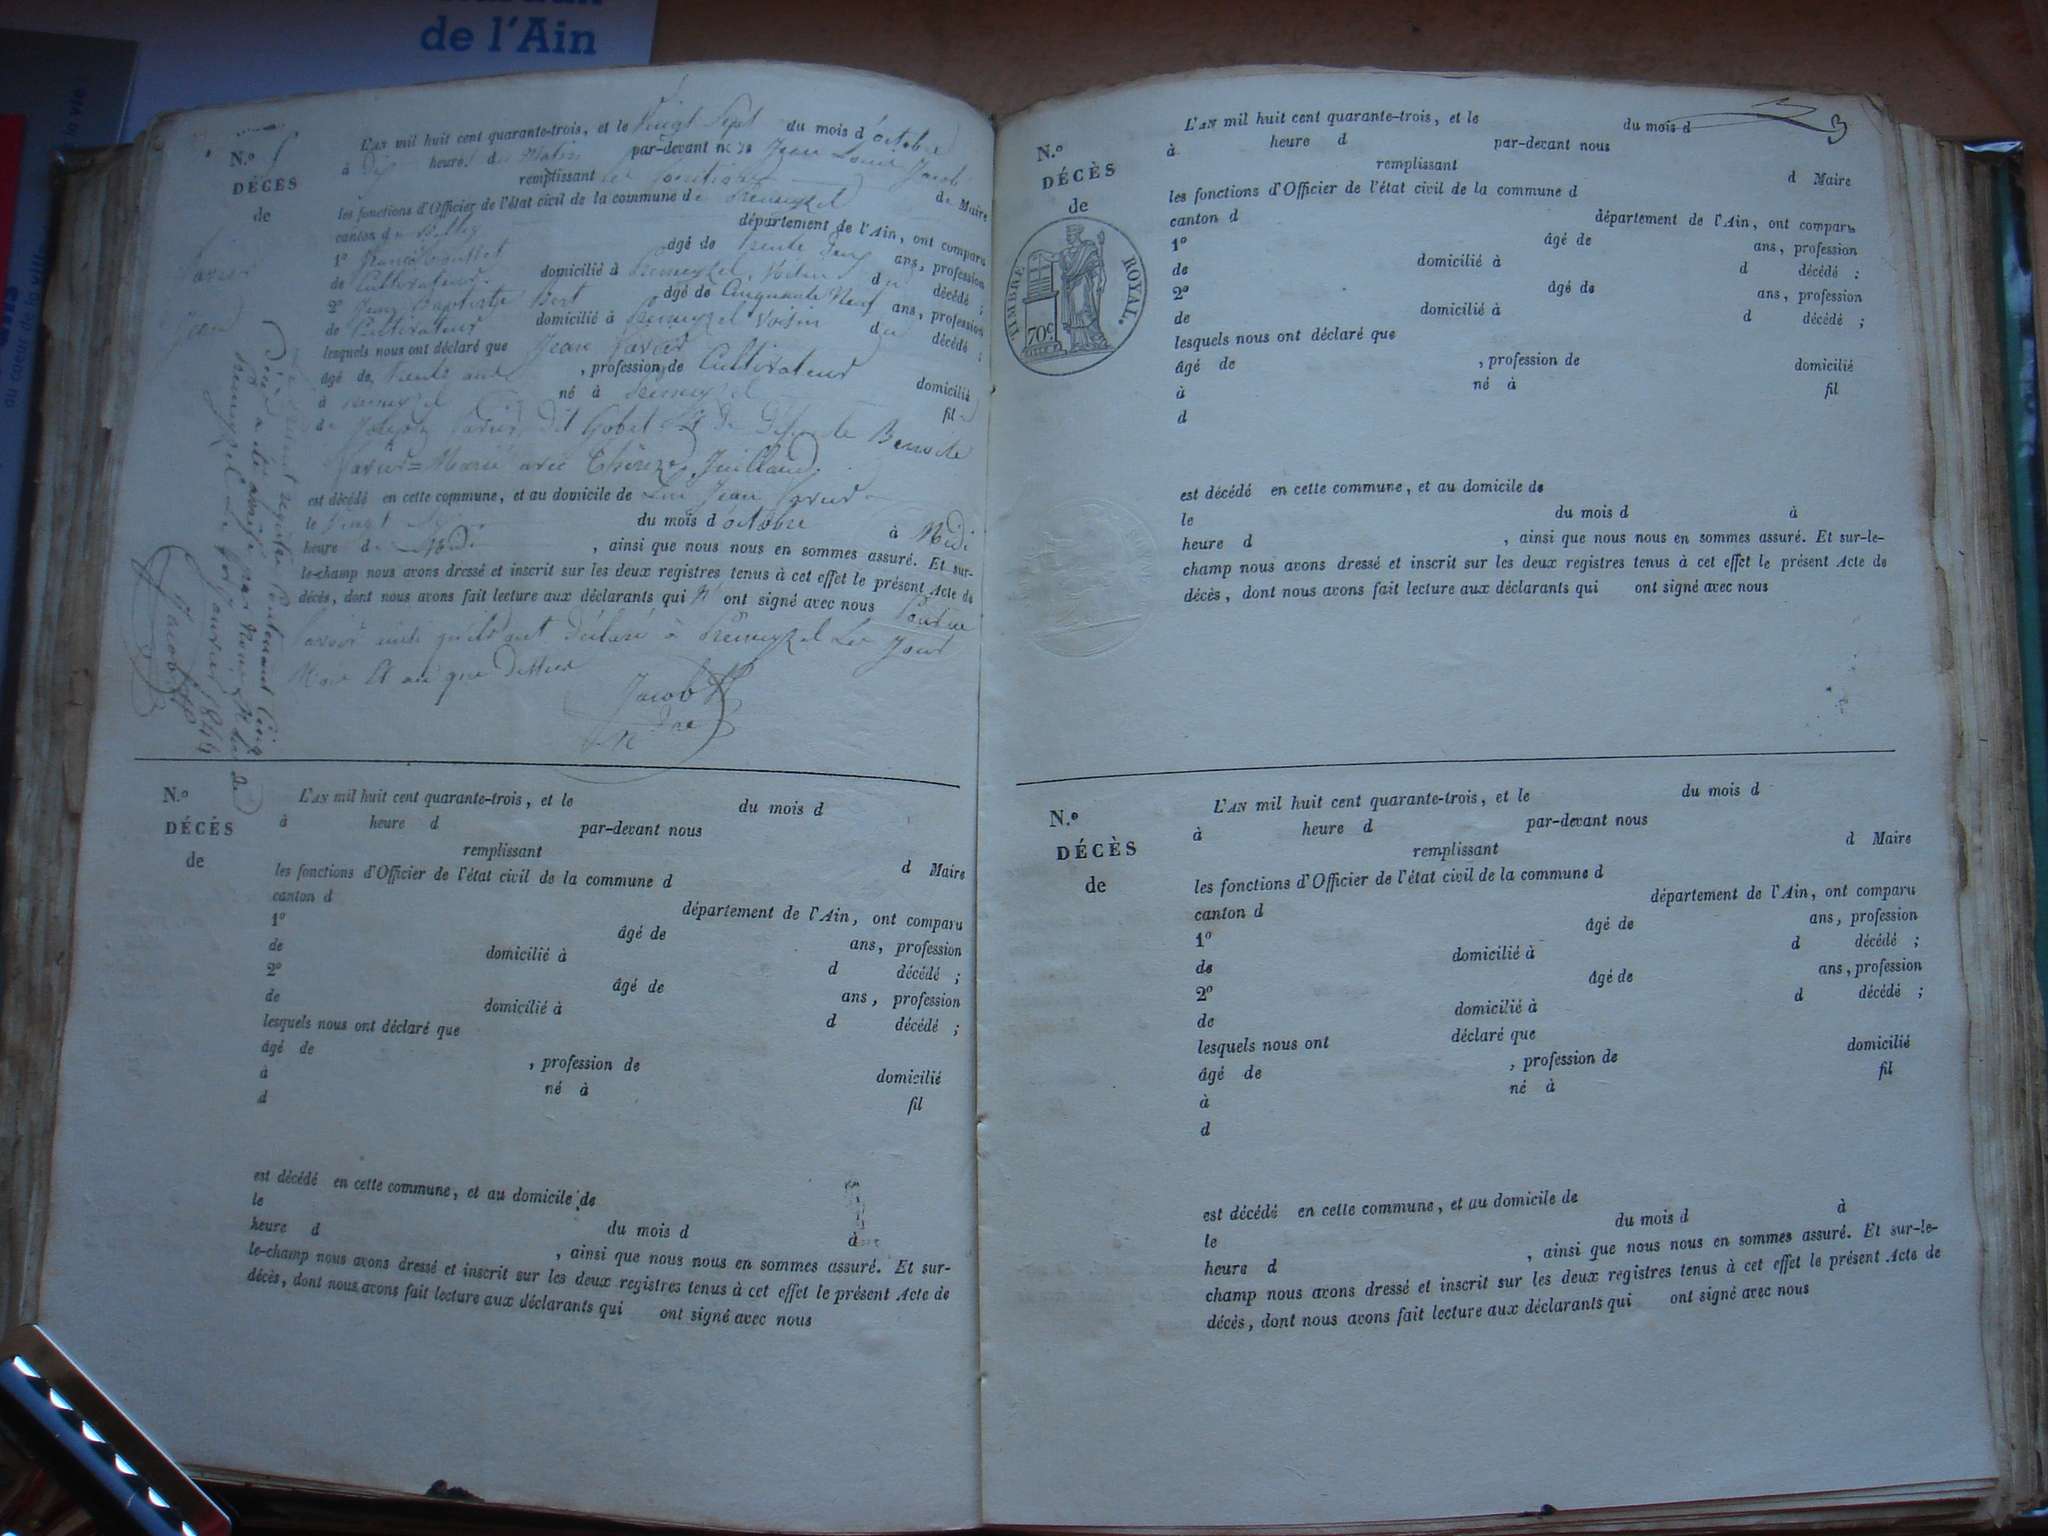 de l'Ain
L'AN mil huit cent quarante-trois, et le Vingt Sept du mois d'octobre
N.º
à heure d Matin par-devant nous Jean Louis Jacob
DÉCÈS
remplissant les fonctions de Maire
de
les fonctions d'Officier de l'état civil de la commune de Premeyzel
canton de Belley département de l'Ain, ont comparu
1º âgé de trente ans, profession
de Cultivateur domicilié à Premeyzel, Voisin du décédé ;
2º Jean Baptiste Bert âgé de Cinquante Neuf ans, profession
de Cultivateur domicilié à Premeyzel Voisin du décédé ;
Jean
lesquels nous ont déclaré que Jean
âgé de trente ans , profession de Cultivateur domicilié
à Premeyzel né à Premeyzel fil
de Joseph dit Gobet Et de Benoite
Marié avec Thérèze Juilland
est décédé en cette commune, et au domicile de Lui Jean
le Vingt du mois d'octobre à Midi
heure de Midi , ainsi que nous nous en sommes assuré. Et sur-
le-champ nous avons dressé et inscrit sur les deux registres tenus à cet effet le présent Acte de
décès, dont nous avons fait lecture aux déclarants qui N' ont signé avec nous Pour ne
savoir ainsi qu'ils ont Déclaré à Premeyzel Les Jour
Mois Et an que Dessus
Jacob
Le présent registre Contenant Cinq
Décès a été arrêté par Nous Maire de
Premeyzel Le Janvier 1844
Jacob
N.º
L'AN mil huit cent quarante-trois, et le du mois d
DÉCÈS
à heure d par-devant nous
de
remplissant d Maire
les fonctions d'Officier de l'état civil de la commune d
canton d département de l'Ain, ont comparu
1º âgé de ans, profession
de domicilié à d décédé ;
2º âgé de ans, profession
de domicilié à d décédé ;
lesquels nous ont déclaré que
âgé de , profession de domicilié
à né à fil
d
est décédé en cette commune, et au domicile de
le du mois d à
heure d , ainsi que nous nous en sommes assuré. Et sur-
le-champ nous avons dressé et inscrit sur les deux registres tenus à cet effet le présent Acte de
décès, dont nous avons fait lecture aux déclarants qui ont signé avec nous
3
L'AN mil huit cent quarante-trois, et le du mois d
N.º
à heure d par-devant nous
DÉCÈS
remplissant d Maire
de
les fonctions d'Officier de l'état civil de la commune d
canton d département de l'Ain, ont comparu
TIMBRE ROYAL.
70c
1º âgé de ans, profession
de domicilié à d décédé ;
2º âgé de ans, profession
de domicilié à d décédé ;
lesquels nous ont déclaré que
âgé de , profession de domicilié
à né à fil
d
est décédé en cette commune, et au domicile de
le du mois d à
heure d , ainsi que nous nous en sommes assuré. Et sur-le-
champ nous avons dressé et inscrit sur les deux registres tenus à cet effet le présent Acte de
décès, dont nous avons fait lecture aux déclarants qui ont signé avec nous
N.º
L'AN mil huit cent quarante-trois, et le du mois d
DÉCÈS
à heure d par-devant nous
de
remplissant d Maire
les fonctions d'Officier de l'état civil de la commune d
canton d département de l'Ain, ont comparu
1º âgé de ans, profession
de domicilié à d décédé ;
2º âgé de ans, profession
de domicilié à d décédé ;
lesquels nous ont déclaré que
âgé de , profession de domicilié
à né à fil
d
est décédé en cette commune, et au domicile de
le du mois d à
heure d , ainsi que nous nous en sommes assuré. Et sur-le-
champ nous avons dressé et inscrit sur les deux registres tenus à cet effet le présent Acte de
décès, dont nous avons fait lecture aux déclarants qui ont signé avec nous